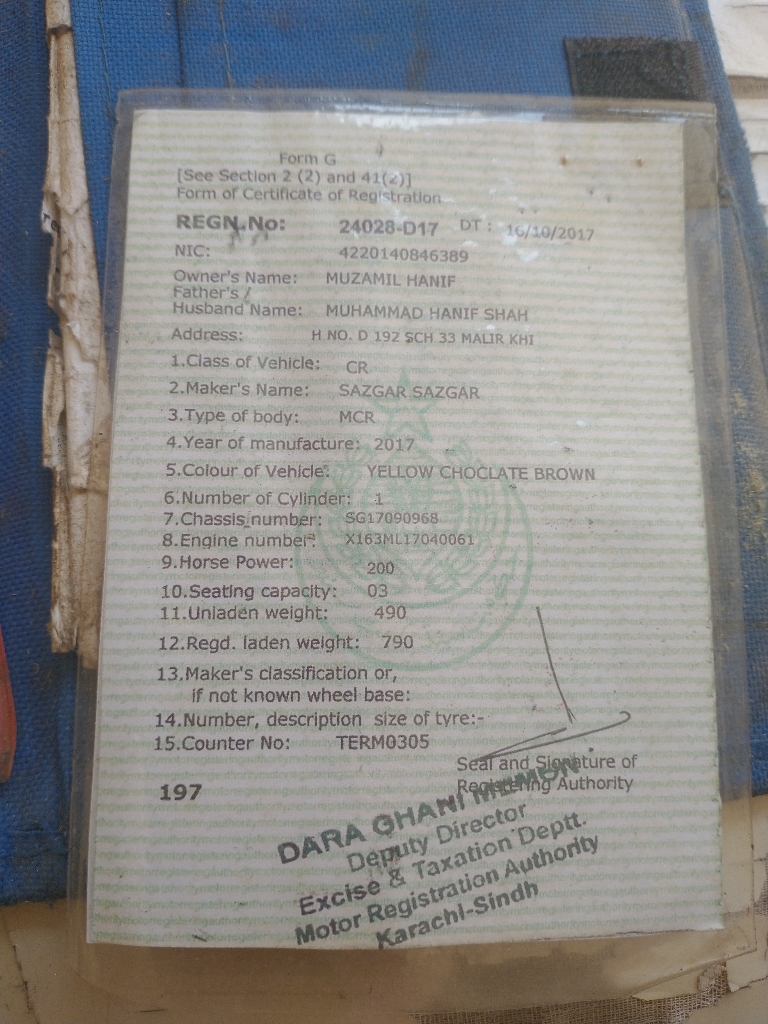 Form G
[See Section 2 (2) and 41(2)]
Form of Certificate of Registration
REGN.No: 24028-D17 DT : 16/10/2017
NIC: 4220140846389
Owner's Name: MUZAMIL HANIF
Father's /
Husband Name: MUHAMMAD HANIF SHAH
Address: H NO. D 192 SCH 33 MALIR KHI
1.Class of Vehicle: CR
2.Maker's Name: SAZGAR SAZGAR
3.Type of body: MCR
4.Year of manufacture: 2017
5.Colour of Vehicle: YELLOW CHOCLATE BROWN
6.Number of Cylinder: 1
7.Chassis number: SG17090968
8.Engine number: X163ML17040061
9.Horse Power: 200
10.Seating capacity: 03
11.Unladen weight: 490
12.Regd. laden weight: 790
13.Maker's classification or,
if not known wheel base:
14.Number, description size of tyre:-
15.Counter No: TERM0305
Seal and Signature of
Registering Authority
197
DARA GHANI MEMON
Deputy Director
Excise & Taxation Deptt.
Motor Registration Authority
Karachi-Sindh